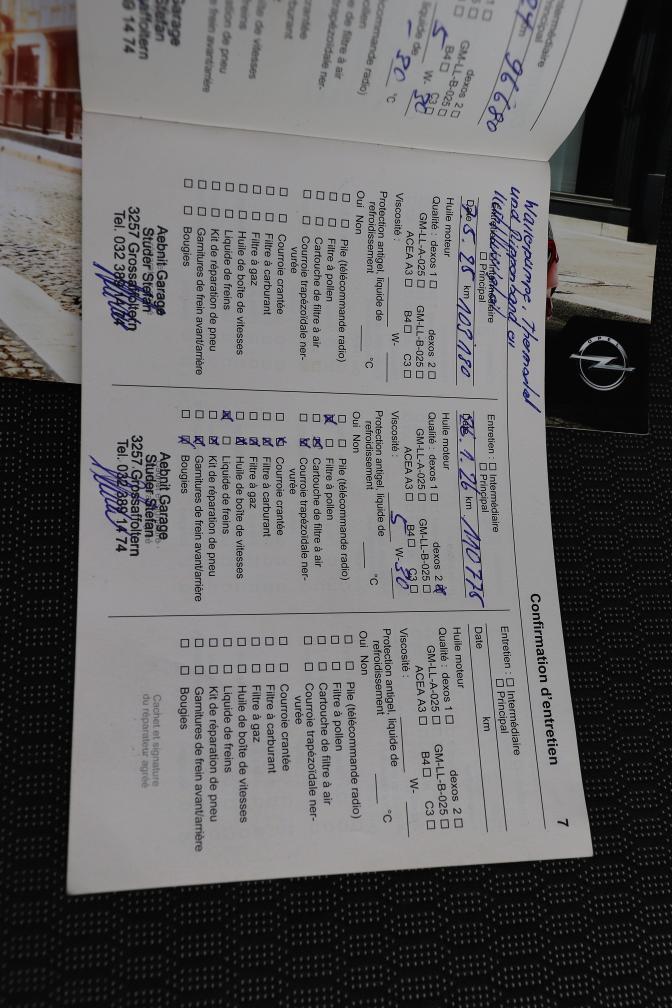 Confirmation d'entretien
7
Intermédiaire
Principal
24 km 96680
dexos 2
B4
GM-LL-B-025
C3
5 W- 30
liquide de
- 30 °C
écommande radio)
ollen
e filtre à air
trapézoïdale ner-
crantée
arburant
îte de vitesses
freins
ation de pneu
e frein avant/arrière
Garage
Stefan
affoltern
89 14 74
und
Intermédiaire
Principal
Date 7.5.25 km 109180
Huile moteur
Qualité : dexos 1 dexos 2
GM-LL-A-025 GM-LL-B-025
ACEA A3 B4 C3
Viscosité : W-
Protection antigel, liquide de
refroidissement °C
Oui Non
Pile (télécommande radio)
Filtre à pollen
Cartouche de filtre à air
Courroie trapézoïdale ner-
vurée
Courroie crantée
Filtre à carburant
Filtre à gaz
Huile de boîte de vitesses
Liquide de freins
Kit de réparation de pneu
Garnitures de frein avant/arrière
Bougies
Aebnit Garage
Studer Stefan
3257 Grossaffoltern
Tel. 032 389 14 74
Entretien : Intermédiaire
Principal
Date 26.1.26 km 110775
Huile moteur
Qualité : dexos 1 dexos 2
GM-LL-A-025 GM-LL-B-025
ACEA A3 B4 C3
Viscosité : 5 W- 30
Protection antigel, liquide de
refroidissement °C
Oui Non
Pile (télécommande radio)
Filtre à pollen
Cartouche de filtre à air
Courroie trapézoïdale ner-
vurée
Courroie crantée
Filtre à carburant
Filtre à gaz
Huile de boîte de vitesses
Liquide de freins
Kit de réparation de pneu
Garnitures de frein avant/arrière
Bougies
Aebnit Garage
Studer Stefan
3257 Grossaffoltern
Tel. 032 389 14 74
Entretien : Intermédiaire
Principal
Date km
Huile moteur
Qualité : dexos 1 dexos 2
GM-LL-A-025 GM-LL-B-025
ACEA A3 B4 C3
Viscosité : W-
Protection antigel, liquide de
refroidissement °C
Oui Non
Pile (télécommande radio)
Filtre à pollen
Cartouche de filtre à air
Courroie trapézoïdale ner-
vurée
Courroie crantée
Filtre à carburant
Filtre à gaz
Huile de boîte de vitesses
Liquide de freins
Kit de réparation de pneu
Garnitures de frein avant/arrière
Bougies
Cachet et signature
du réparateur agréé
OPEL